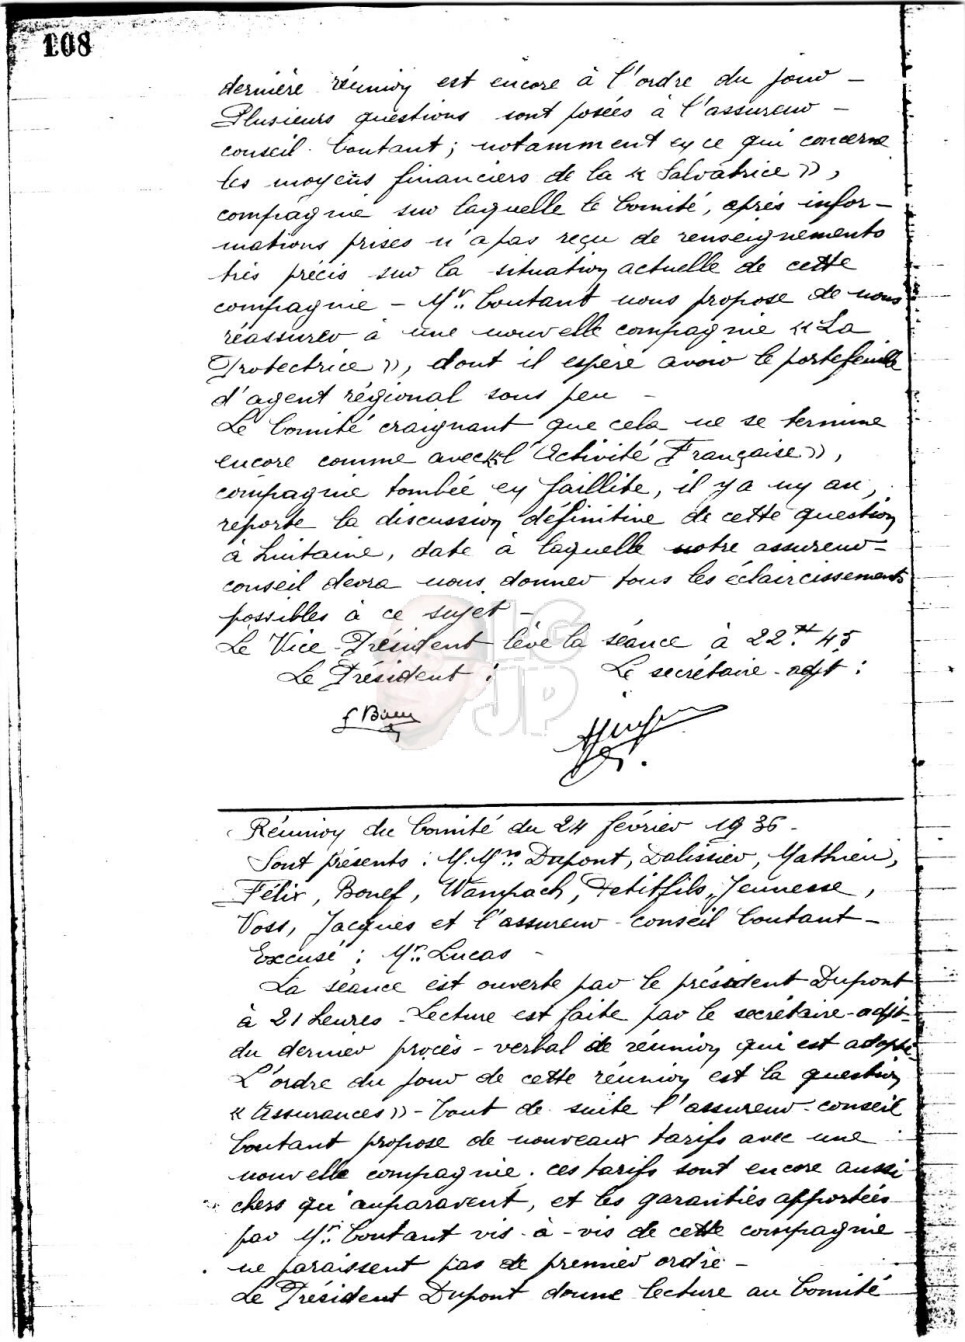 108
dernière réunion est encore à l'ordre du jour –
Plusieurs questions sont posées à l'assureur –
conseil Coutant ; notamment en ce qui concerne
les moyens financiers de la « Salvatrice »,
compagnie sur laquelle le Comité, après infor–
mations prises n'a pas reçu de renseignements
très précis sur la situation actuelle de cette
compagnie – Mr. Coutant nous propose de nous
réassurer à une nouvelle compagnie « La
Protectrice », dont il espère avoir le portefeuille
d'agent régional sous peu –
Le Comité craignant que cela ne se termine
encore comme avec « l'Activité Française »,
compagnie tombée en faillite, il y a un an,
reporte la discussion définitive de cette question
à huitaine, date à laquelle notre assureur–
conseil devra nous donner tous les éclaircissements
possibles à ce sujet –
Le Vice-Président lève la séance à 22 H 45
Le Président : Le secrétaire-adjt :
LG
JP
Réunion du Comité du 24 février 1936 –
Sont présents : M.Mrs Dupont, Dalissier, Mathieu,
Félix, Bonef, Wampach, Petitfils, Jeunesse,
Voss, Jacques et l'assureur-conseil Coutant –
Excusé : Mr. Lucas –
La séance est ouverte par le président Dupont
à 21 heures – Lecture est faite par le secrétaire-adjt–
du dernier procès-verbal de réunion qui est adopté
L'ordre du jour de cette réunion est la question
« Assurances » – Tout de suite l'assureur-conseil
Coutant propose de nouveaux tarifs avec une
nouvelle compagnie. ces tarifs sont encore aussi
chers qu'auparavent, et les garanties apportées
par Mr. Coutant vis-à-vis de cette compagnie
ne paraissent pas de premier ordre –
Le Président Dupont donne lecture au Comité